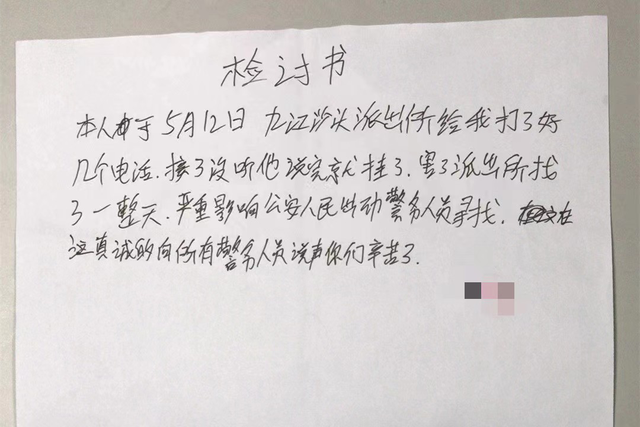 检讨书
本人于5月12日 九江沙头派出所给我打了好
几个电话.接了没听他说完就挂了.害了派出所找
了一整天.严重影响公安人民出动警务人员寻找.在
这真诚的向所有警务人员说声你们辛苦了.